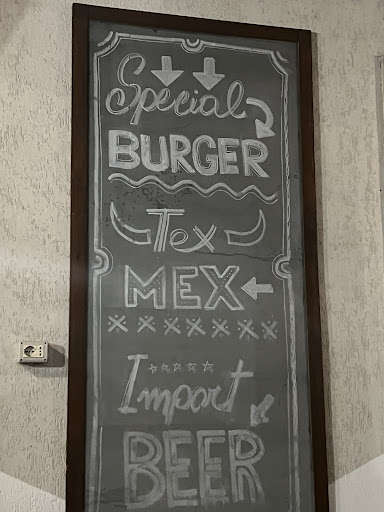 Special
BURGER
Tex
MEX
Import
BEER